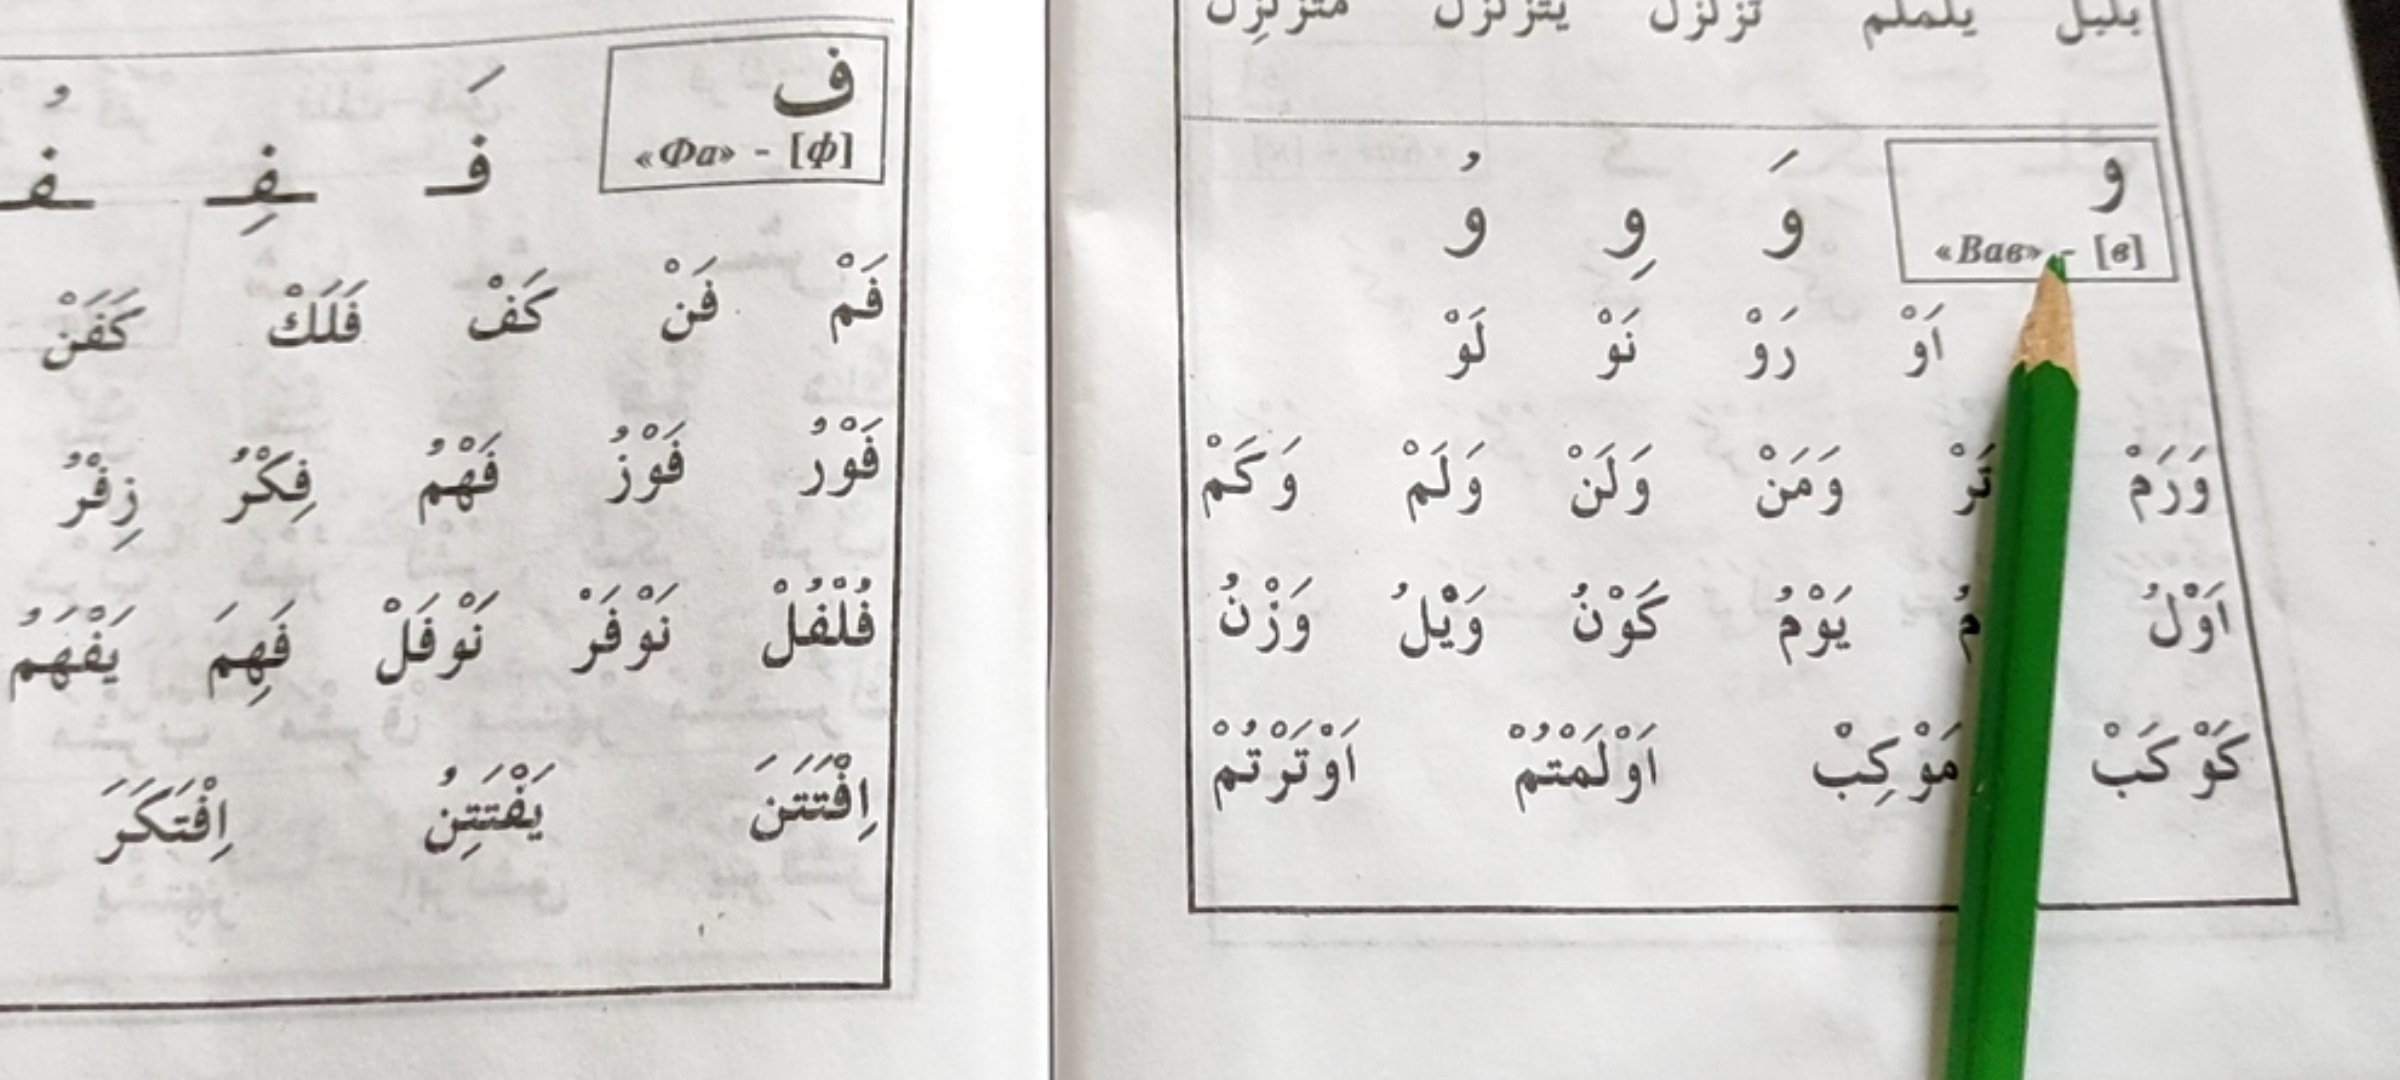 بلبل يلملم تزلزل يتزلزل متزلزل
و
«Вав» - [в]
وَ وِ وُ
اَوْ رَوْ نَوْ لَوْ
وَرَمْ وَمَنْ وَلَنْ وَلَمْ وَكَمْ
اَوْلُ يَوْمُ كَوْنُ وَيْلُ وَزْنُ
كَوْكَبْ مَوْكِبْ اَوْلَمْتُمْ اَوْتَرْتُمْ
ف
«Фа» - [ф]
فَ فِ فُ
فَمْ فَنْ كَفْ فَلَكْ كَفَنْ
فَوْرُ فَوْزُ فَهْمُ فِكْرُ زِفْرُ
فُلْفُلْ نَوْفَرْ نَوْفَلْ فَهِمَ يَفْهَمُ
اِفْتَتَنَ يَفْتَتِنُ اِفْتَكَرَ